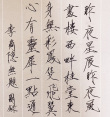 昨夜星辰昨夜風
畫樓西畔桂堂東
身無彩鳳雙飛翼
心有靈犀一點通
李商隱無題